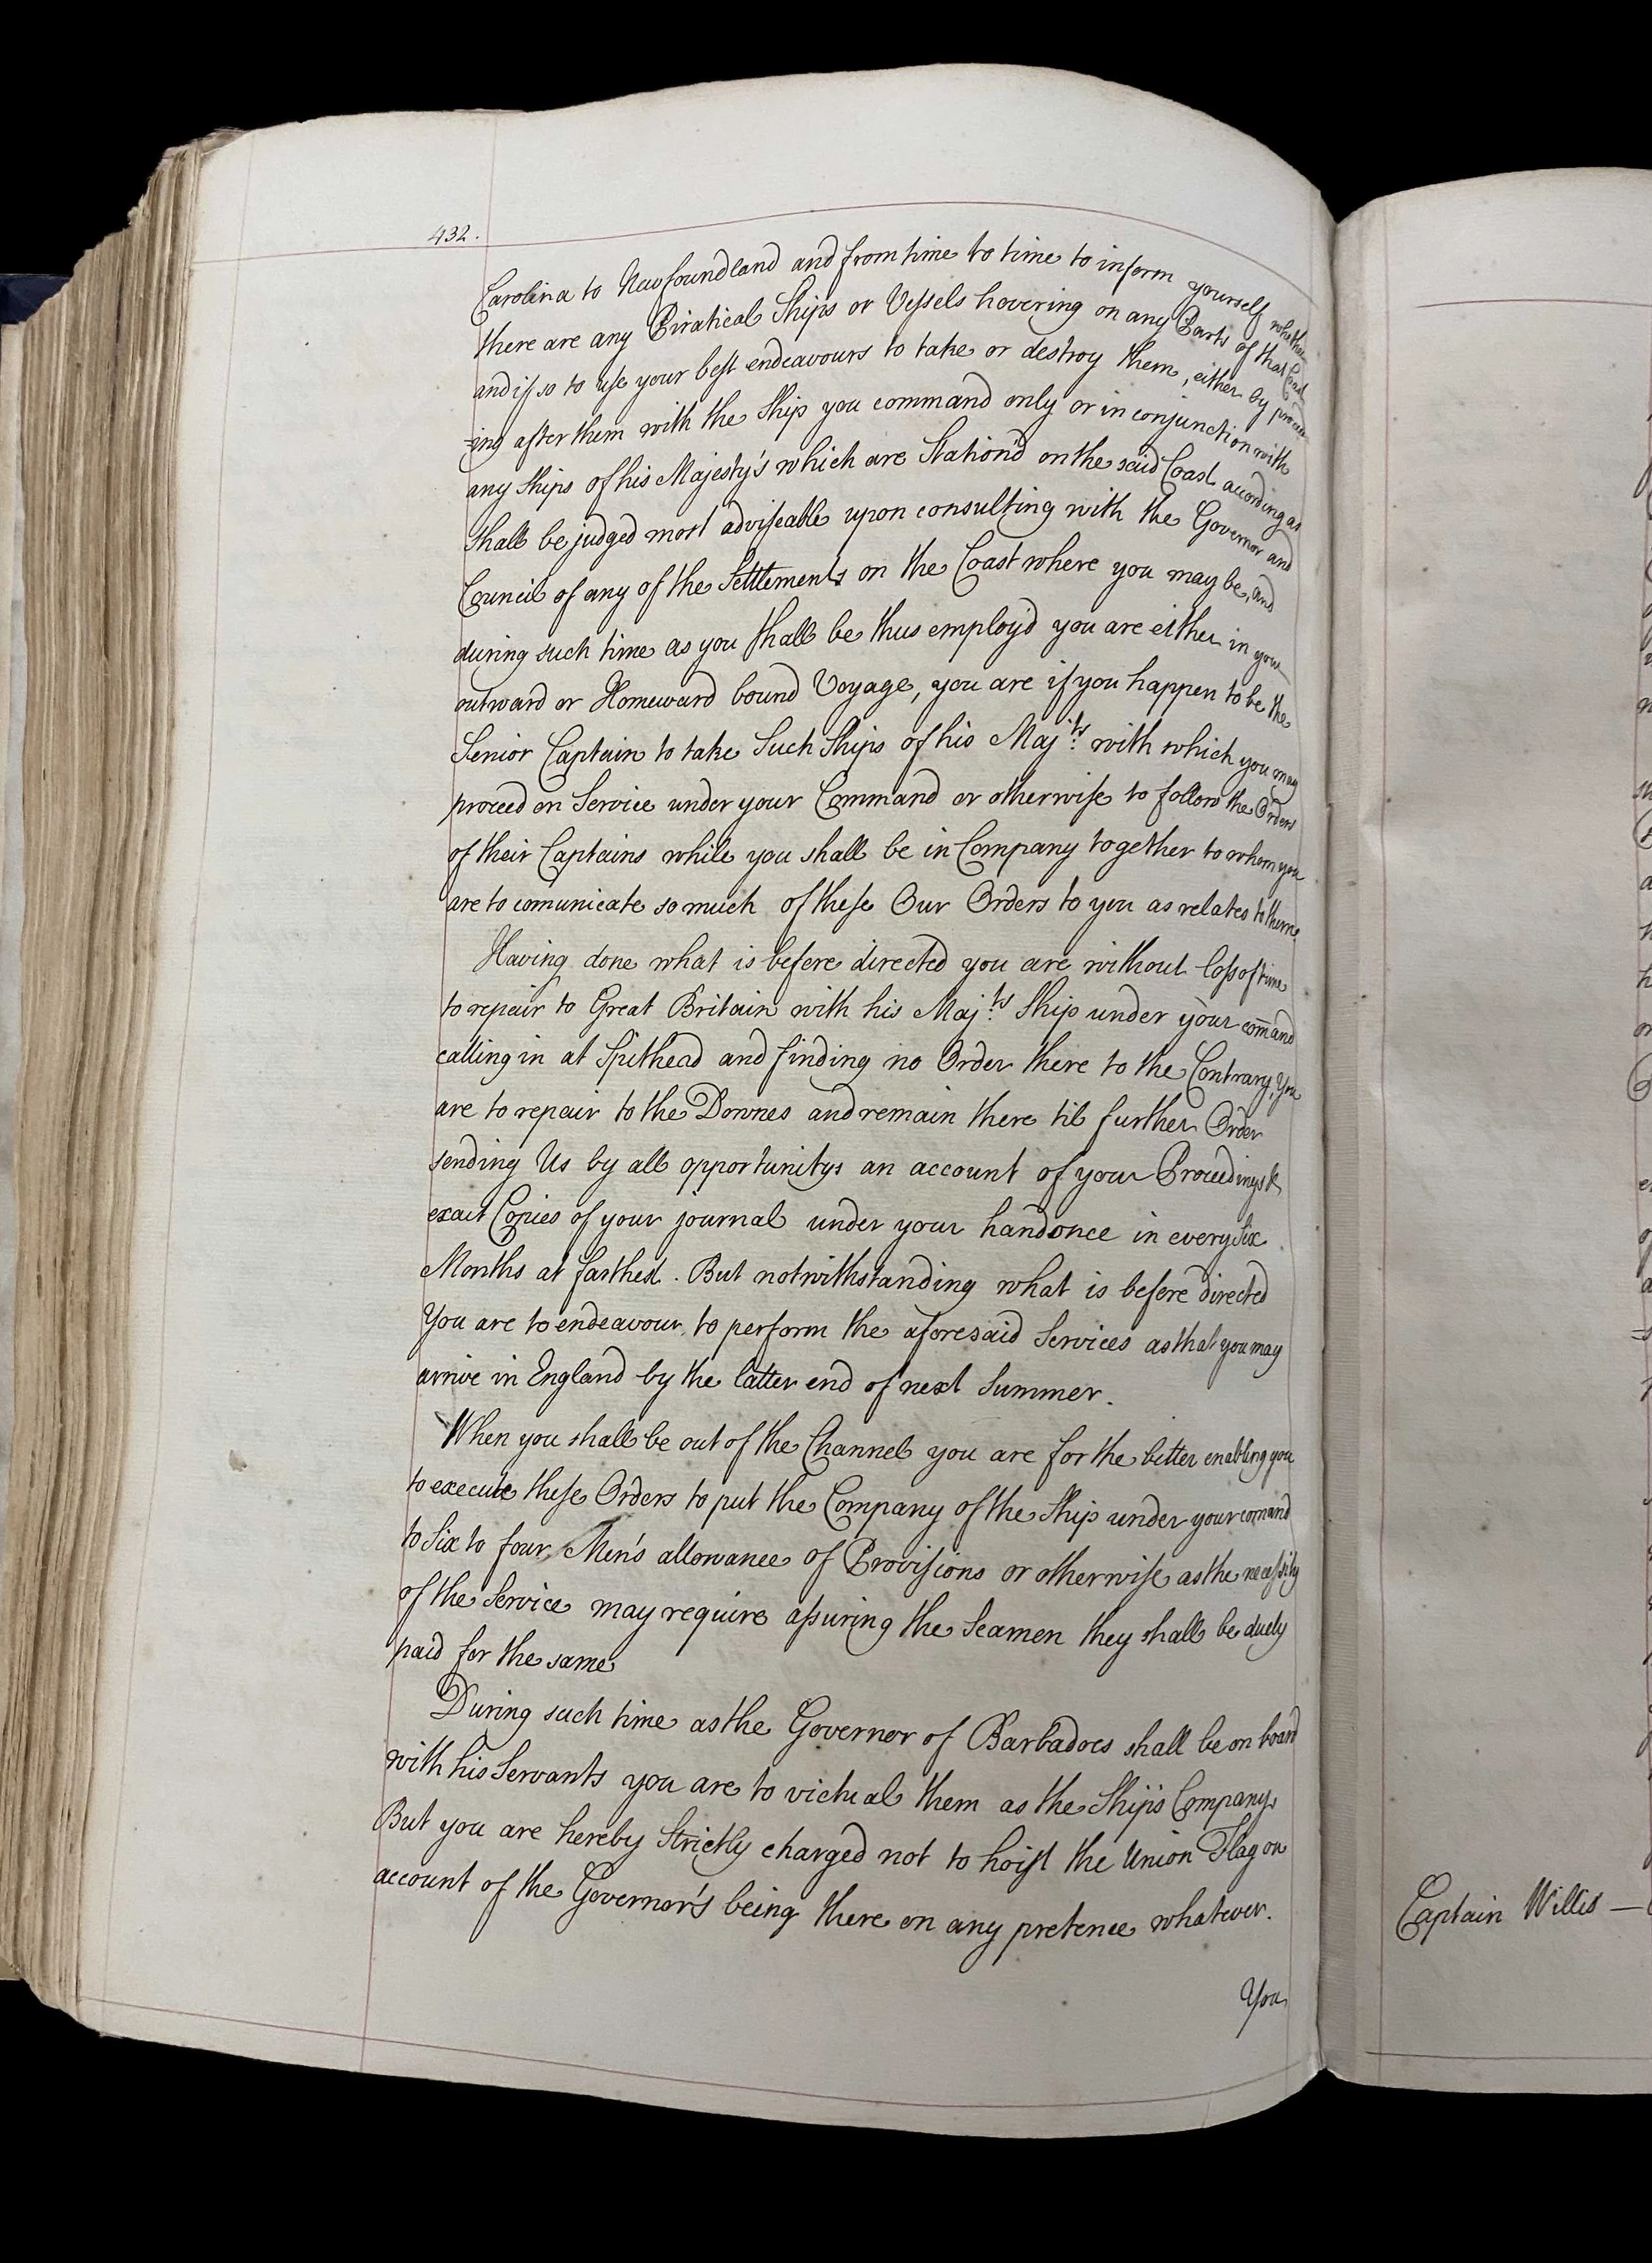 432.
Carolina to Newfoundland and from time to time to inform yourself whether
there are any Piratical Ships or Vessels hovering on any Parts of that Coast
and if so to use your best endeavours to take or destroy them, either by proceed
=ing after them with the Ship you command only or in conjunction with
any Ships of his Majesty's which are Station'd on the said Coast according as
shall be judged most adviseable upon consulting with the Governor and
Council of any of the Settlements on the Coast where you may be, and
during such time as you shall be thus employ'd you are either in your
outward or Homeward bound Voyage, you are if you happen to be the
Senior Captain to take Such Ships of his Maj:ts with which you may
proceed on Service under your Command or otherwise to follow the Orders
of their Captains while you shall be in Company together to whom you
are to comunicate so much of these Our Orders to you as relates to them.
Having done what is before directed you are without loss of time
to repair to Great Britain with his Maj:ts Ship under your com̄and
calling in at Spithead and finding no Order there to the Contrary, You
are to repair to the Downes and remain there til further Order
sending Us by all opportunitys an account of your Proceedings &
exact Copies of your journal under your hand once in every Six
Months at farthest. But notwithstanding what is before directed
You are to endeavour to perform the aforesaid Services as that you may
arrive in England by the latter end of next Summer.
When you shall be out of the Channel you are for the better enabling you
to execute these Orders to put the Company of the Ship under your comand
to Six to four Men's allowance of Provisions or otherwise as the necessity
of the Service may require assuring the Seamen they shall be duely
paid for the same
During such time as the Governor of Barbadoes shall be on board
with his Servants you are to victual them as the Ship's Company,
But you are hereby Strictly charged not to hoist the Union Flag on
account of the Governor's being there on any pretence whatever.
You
Captain Willis —